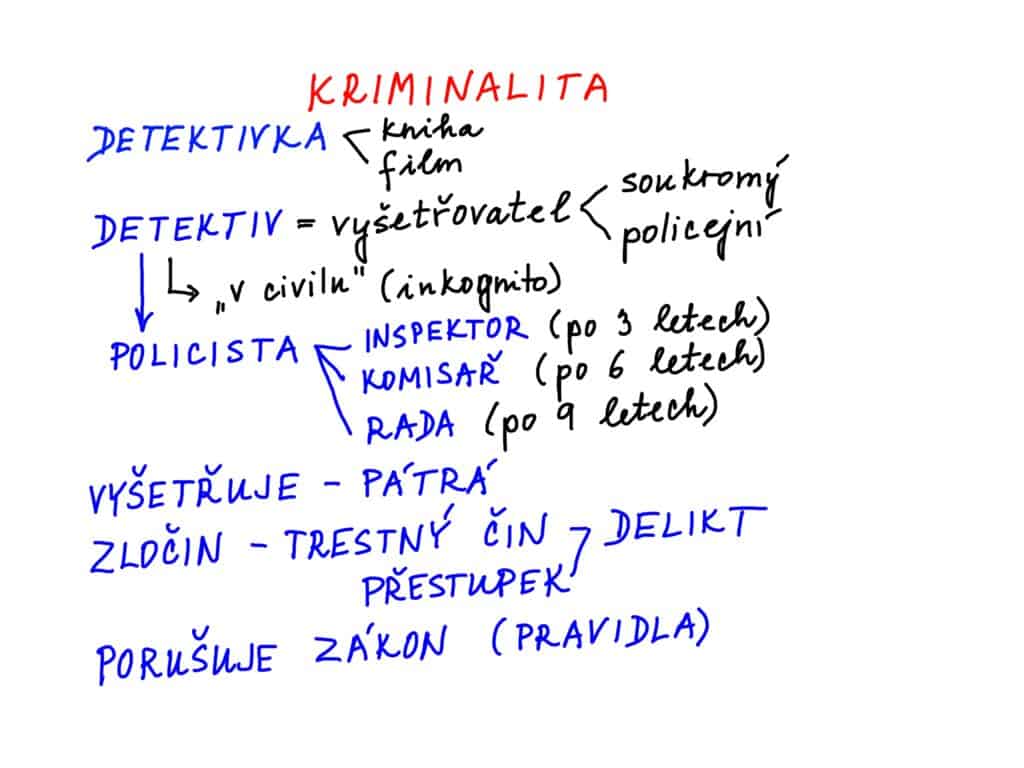 KRIMINALITA
DETEKTIVKA < kniha
film
DETEKTIV = vyšetřovatel < soukromý
policejní
↳ „v civilu" (inkognito)
POLICISTA INSPEKTOR (po 3 letech)
KOMISAŘ (po 6 letech)
RADA (po 9 letech)
VYŠETŘUJE - PÁTRÁ
ZLOČIN - TRESTNÝ ČIN DELIKT
PŘESTUPEK
PORUŠUJE ZÁKON (PRAVIDLA)